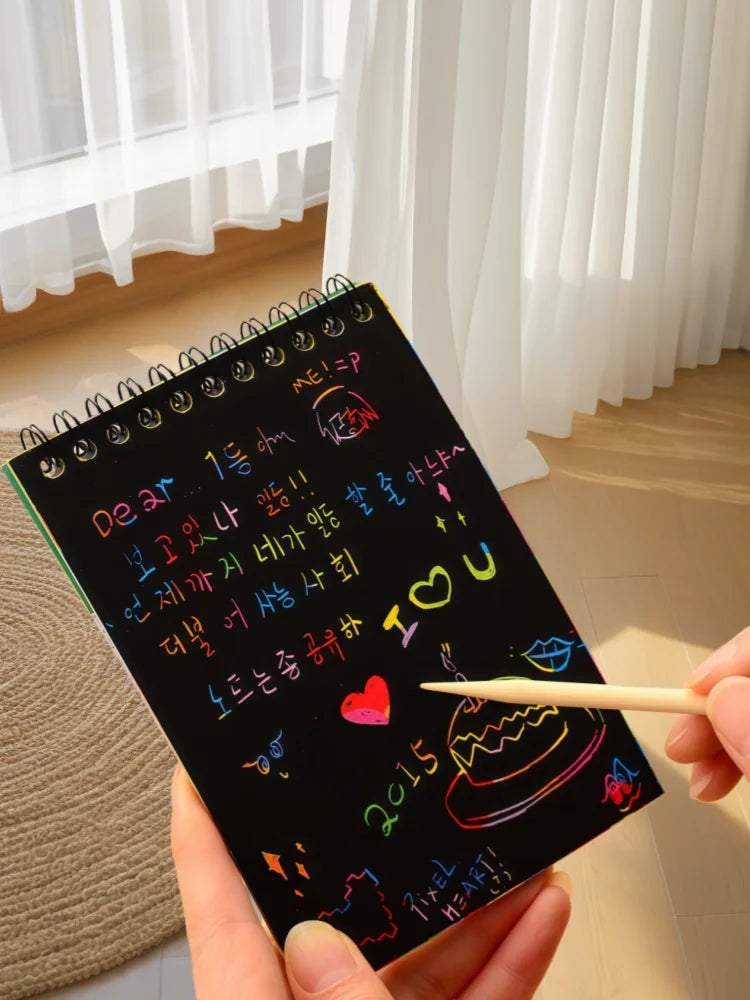 ME! =P
Dear... 1등
보고있나 일등!!
언제까지 네가 일등 할 줄 아냐~
더불어 사는 사회
노트는좀 공유하
I ♡ U
2015
PIXEL
HEART!